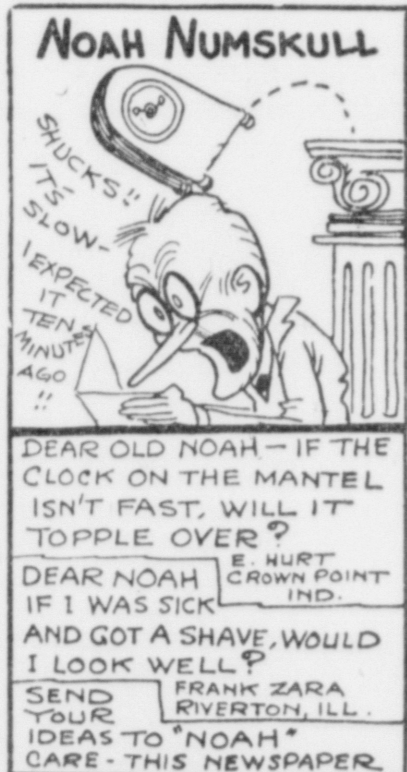 NOAH NUMSKULL
SHUCKS!!
IT'S
SLOW-
I EXPECTED
IT
TEN
MINUTES
AGO
!!
DEAR OLD NOAH - IF THE
CLOCK ON THE MANTEL
ISN'T FAST, WILL IT
TOPPLE OVER?
E. HURT
CROWN POINT
IND.
DEAR NOAH
IF I WAS SICK
AND GOT A SHAVE, WOULD
I LOOK WELL?
FRANK ZARA
RIVERTON, ILL.
SEND
YOUR
IDEAS TO "NOAH"
CARE - THIS NEWSPAPER